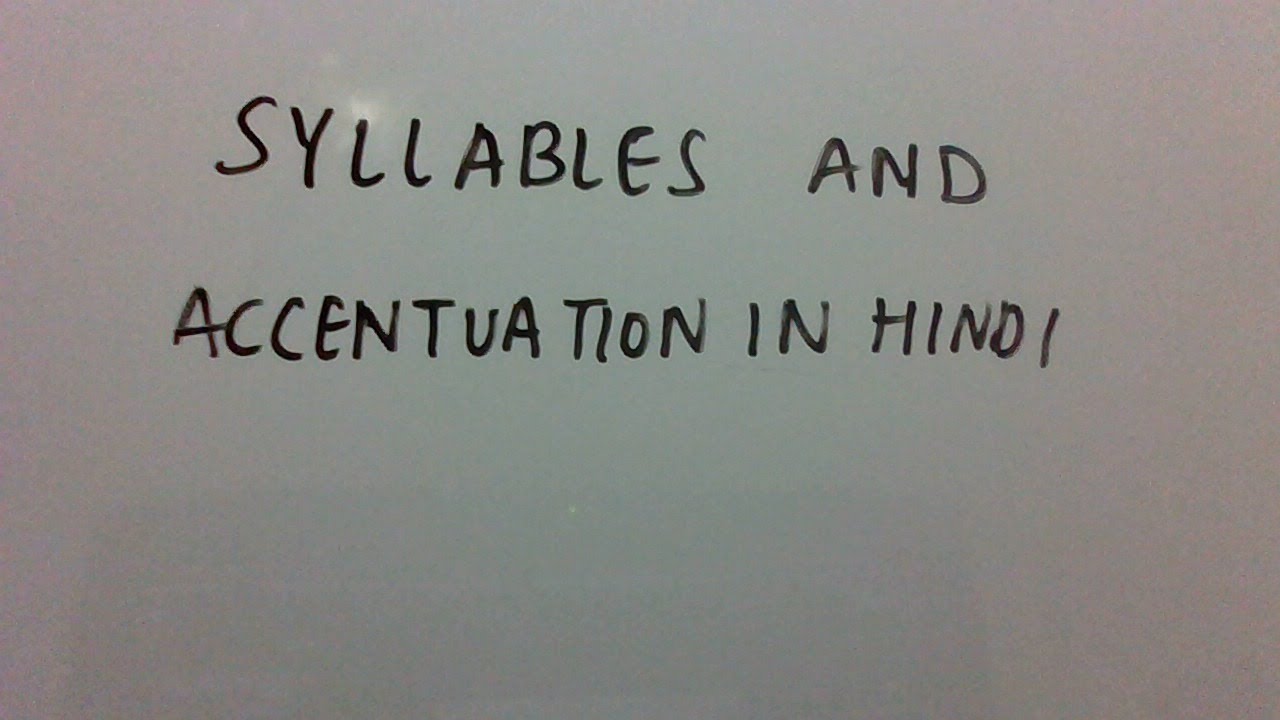 SYLLABLES AND
ACCENTUATION IN HINDI